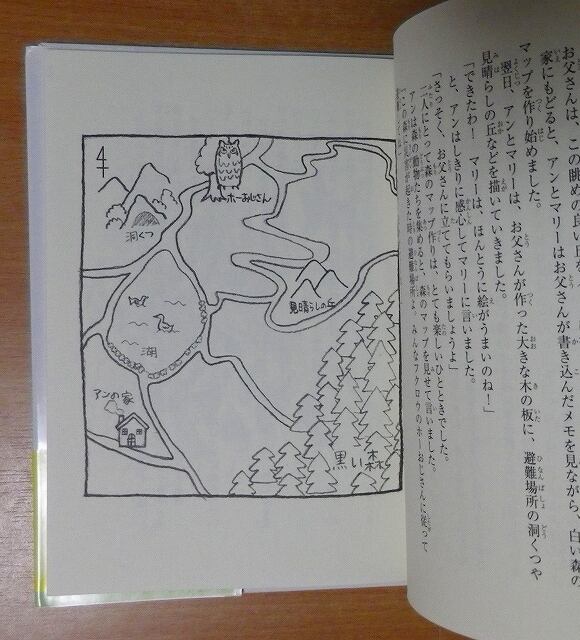 お父さんは、この眺めの
家にもどると、アンとマリーはお父さんが書き込んだメモを見ながら、白い森の
マップを作り始めました。
翌日、アンとマリーは、お父さんが作った大きな木の板に、避難場所の洞くつや
見晴らしの丘などを描いていきました。
「できたわ! マリーは、ほんとうに絵がうまいのね!」
と、アンはしきりに感心してマリーに言いました。
「さっそく、お父さんに立ててもらいましょうよ」
二人にとって森のマップ作りは、とても楽しいひとときでした。
アンは森の動物たちを集めると、森のマップを見せて言いました。
みんなフクロウのホーおじさんに従って
ホーおじさん
洞くつ
見晴らしの丘
湖
アンの家
黒い森